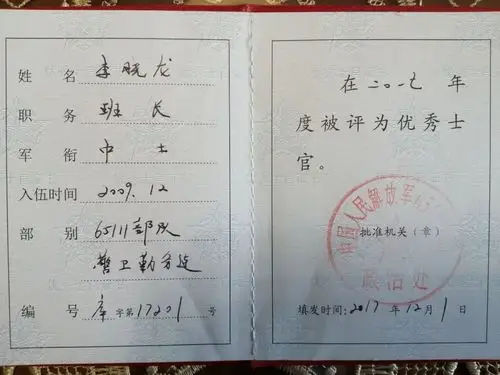 姓名 李晓龙
职务 班长
军衔 中士
入伍时间 2009.12
部别 65111部队
警卫勤务连
编号 库字第17201号
在二〇一七年
度被评为优秀士
官。
中国人民解放军
批准机关(章)
政治处
填发时间:2017年12月1日